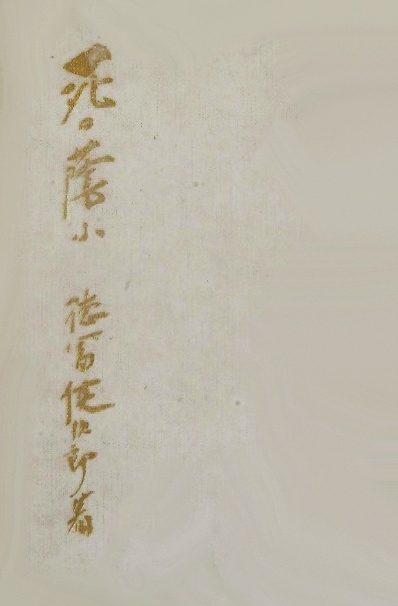 死の蔭に 徳冨健次郎著